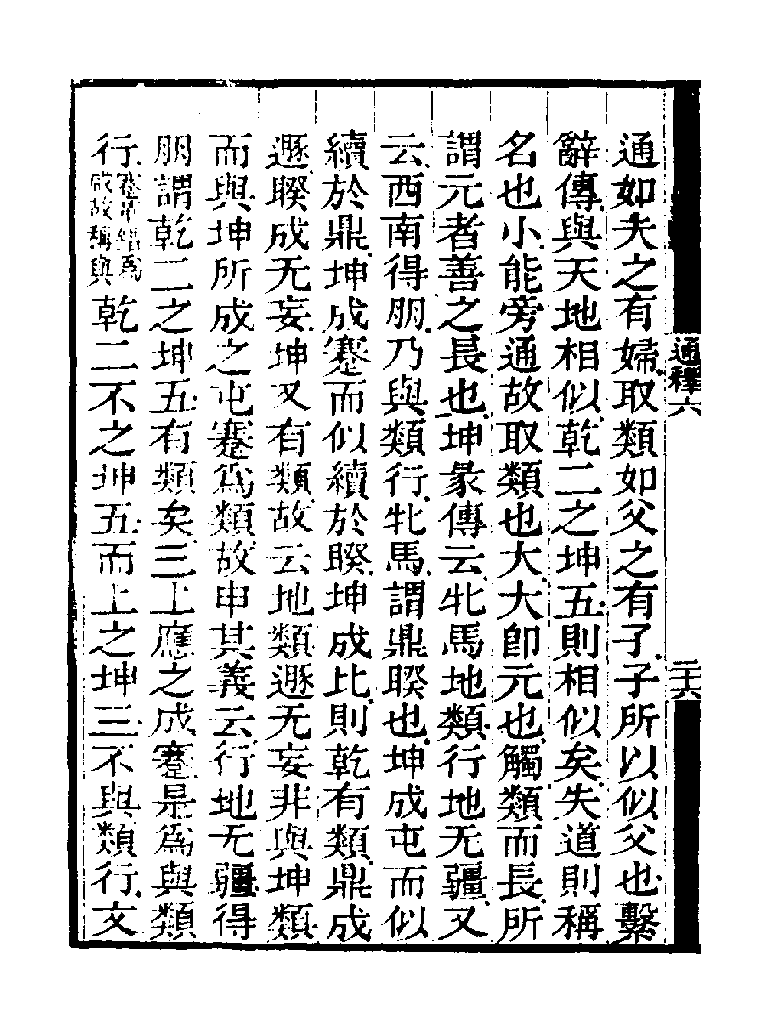 通如夫之有婦取類如父之有子子所以似父也繫
辭傳與天地相似乾二之坤五則相似矣失道則稱
名也小能旁通故取類也大大卽元也觸類而長所
謂元者善之長也坤彖傳云牝馬地類行地无疆又
云西南得朋乃與類行牝馬謂鼎睽也坤成屯而似
續於鼎坤成蹇而似續於睽坤成比則乾有類鼎成
遯睽成无妄坤又有類故云地類遯无妄非與坤類
而與坤所成之屯蹇爲類故申其義云行地无疆得
朋謂乾二之坤五有類矣三上應之成蹇是爲與類
行蹇革錯爲咸故稱與乾二不之坤五而上之坤三不與類行文
通釋六
二十六